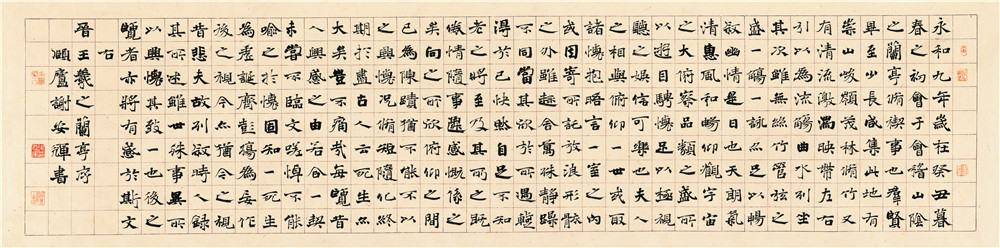 永和九年歲在癸丑暮
春之初會于會稽山陰
之蘭亭脩禊事也羣賢
畢至少長咸集此地有
崇山峻領茂林脩竹又
有清流激湍映帶左右
引以為流觴曲水列坐
其次雖無絲竹管弦之
盛一觴一詠亦足以暢
敘幽情是日也天朗氣
清惠風和暢仰觀宇宙
之大俯察品類之盛所
以遊目騁懷足以極視
聽之娛信可樂也夫人
之相與俯仰一世或取
諸懷抱晤言一室之內
或因寄所託放浪形骸
之外雖趣舍萬殊靜躁
不同當其欣於所遇蹔
得於己快然自足不知
老之將至及其所之既
倦情隨事遷感慨係之
矣向之所欣俛仰之間
已為陳迹猶不能不以
之興懷況脩短隨化終
期於盡古人云死生亦
大矣豈不痛哉每攬昔
人興感之由若合一契
未嘗不臨文嗟悼不能
喻之於懷固知一死生
為虛誕齊彭殤為妄作
後之視今亦猶今之視
昔悲夫故列敘時人錄
其所述雖世殊事異所
以興懷其致一也後之
攬者亦將有感於斯文
右
晉王羲之蘭亭序
順廬謝安輝書